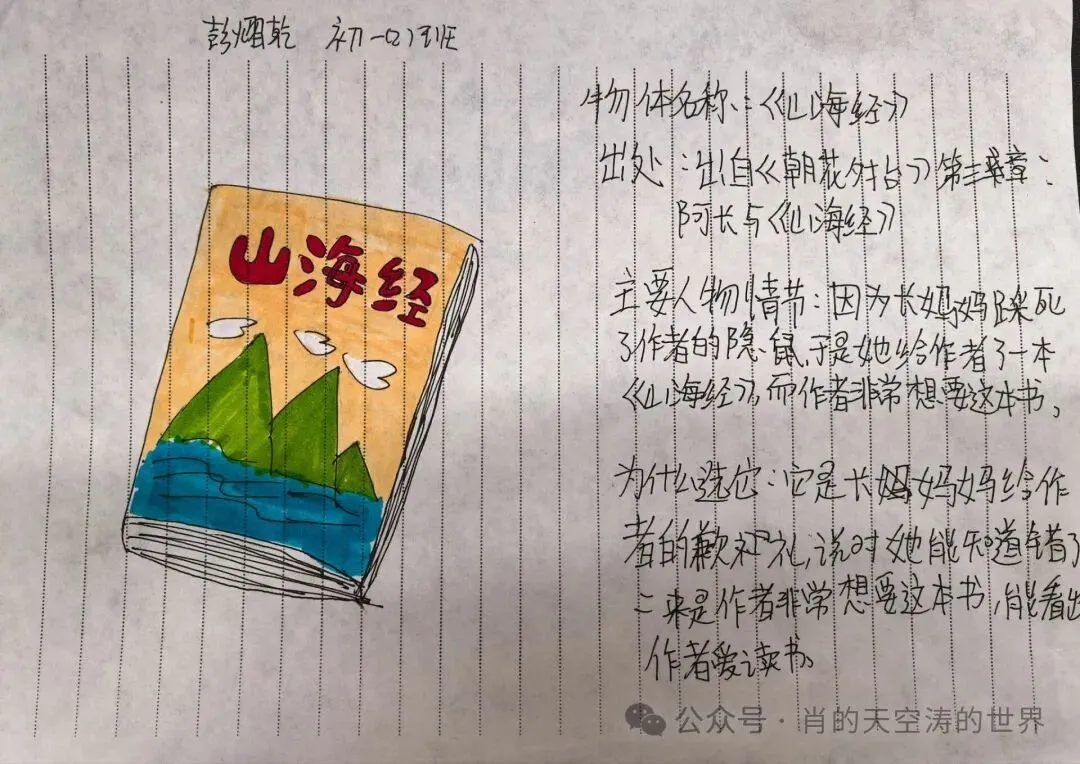 彭熠乾 初一(2)班
山海经
物体名称:《山海经》
出处:出自《朝花夕拾》第三章:
阿长与《山海经》
主要人物情节:因为长妈妈踩死
了作者的隐鼠,于是她给作者了一本
《山海经》,而作者非常想要这本书。
为什么选它:它是长妈妈给作
者的歉礼,说明她能知道错了
二来是作者非常想要这本书,能看出
作者爱读书。
公众号·肖的天空涛的世界